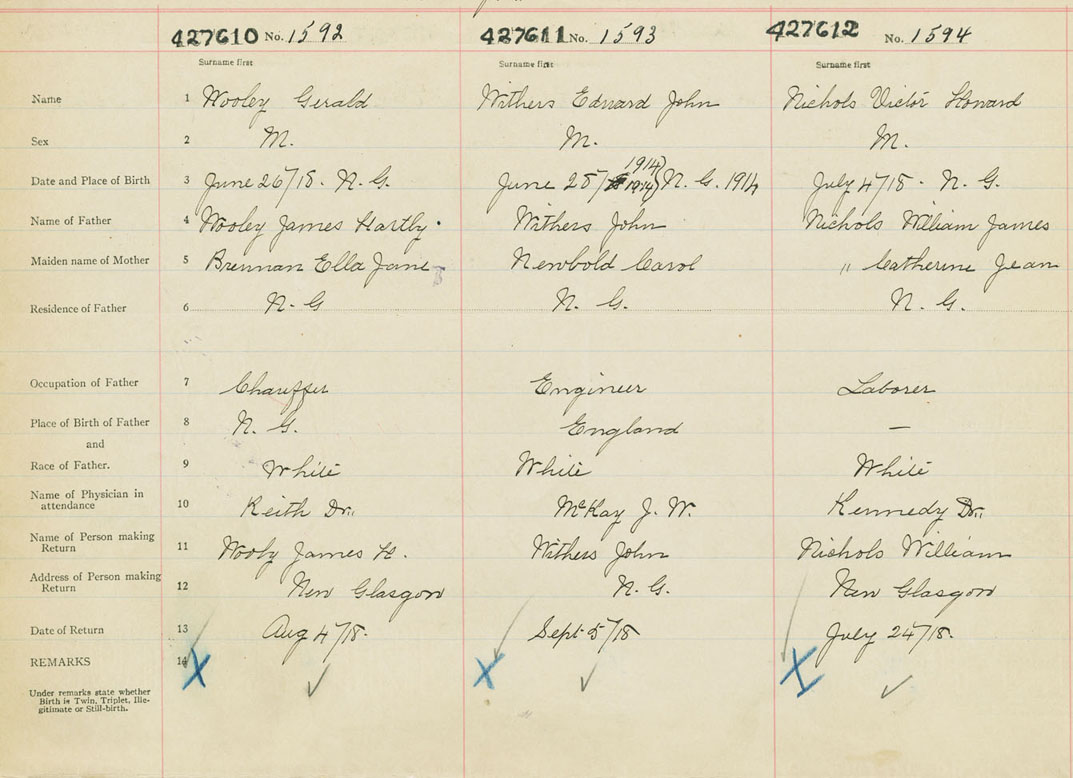 427610 No. 1592 427611 No. 1593 427612 No. 1594
Surname first Surname first Surname first
Name 1 Wooley Gerald Withers Edward John Nichols Victor Howard
Sex 2 M. M. M.
Date and Place of Birth 3 June 26/18. N. G. June 28/ 1914 N. G. 1914 July 4/18. N. G.
Name of Father 4 Wooley James Hartly. Withers John Nichols William James
Maiden name of Mother 5 Brennan Ella Jane Newbold Carol " Catherine Jean
Residence of Father 6 N. G N. G. N. G.
Occupation of Father 7 Chauffer Engineer Laborer
Place of Birth of Father 8 N. G. England —
and
Race of Father. 9 White White White
Name of Physician in attendance 10 Keith Dr. McKay J. W. Kennedy Dr.
Name of Person making Return 11 Wooly James H. Withers John Nichols William
Address of Person making Return 12 New Glasgow N. G. New Glasgow
Date of Return 13 Aug 4/18. Sept 5/18 July 24/18.
REMARKS 14 X ✓ X ✓ X ✓
Under remarks state whether
Birth is Twin, Triplet, Ille-
gitimate or Still-birth.